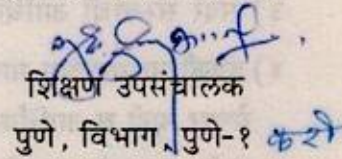 शिक्षण उपसंचालक
पुणे, विभाग, पुणे-१ करीता